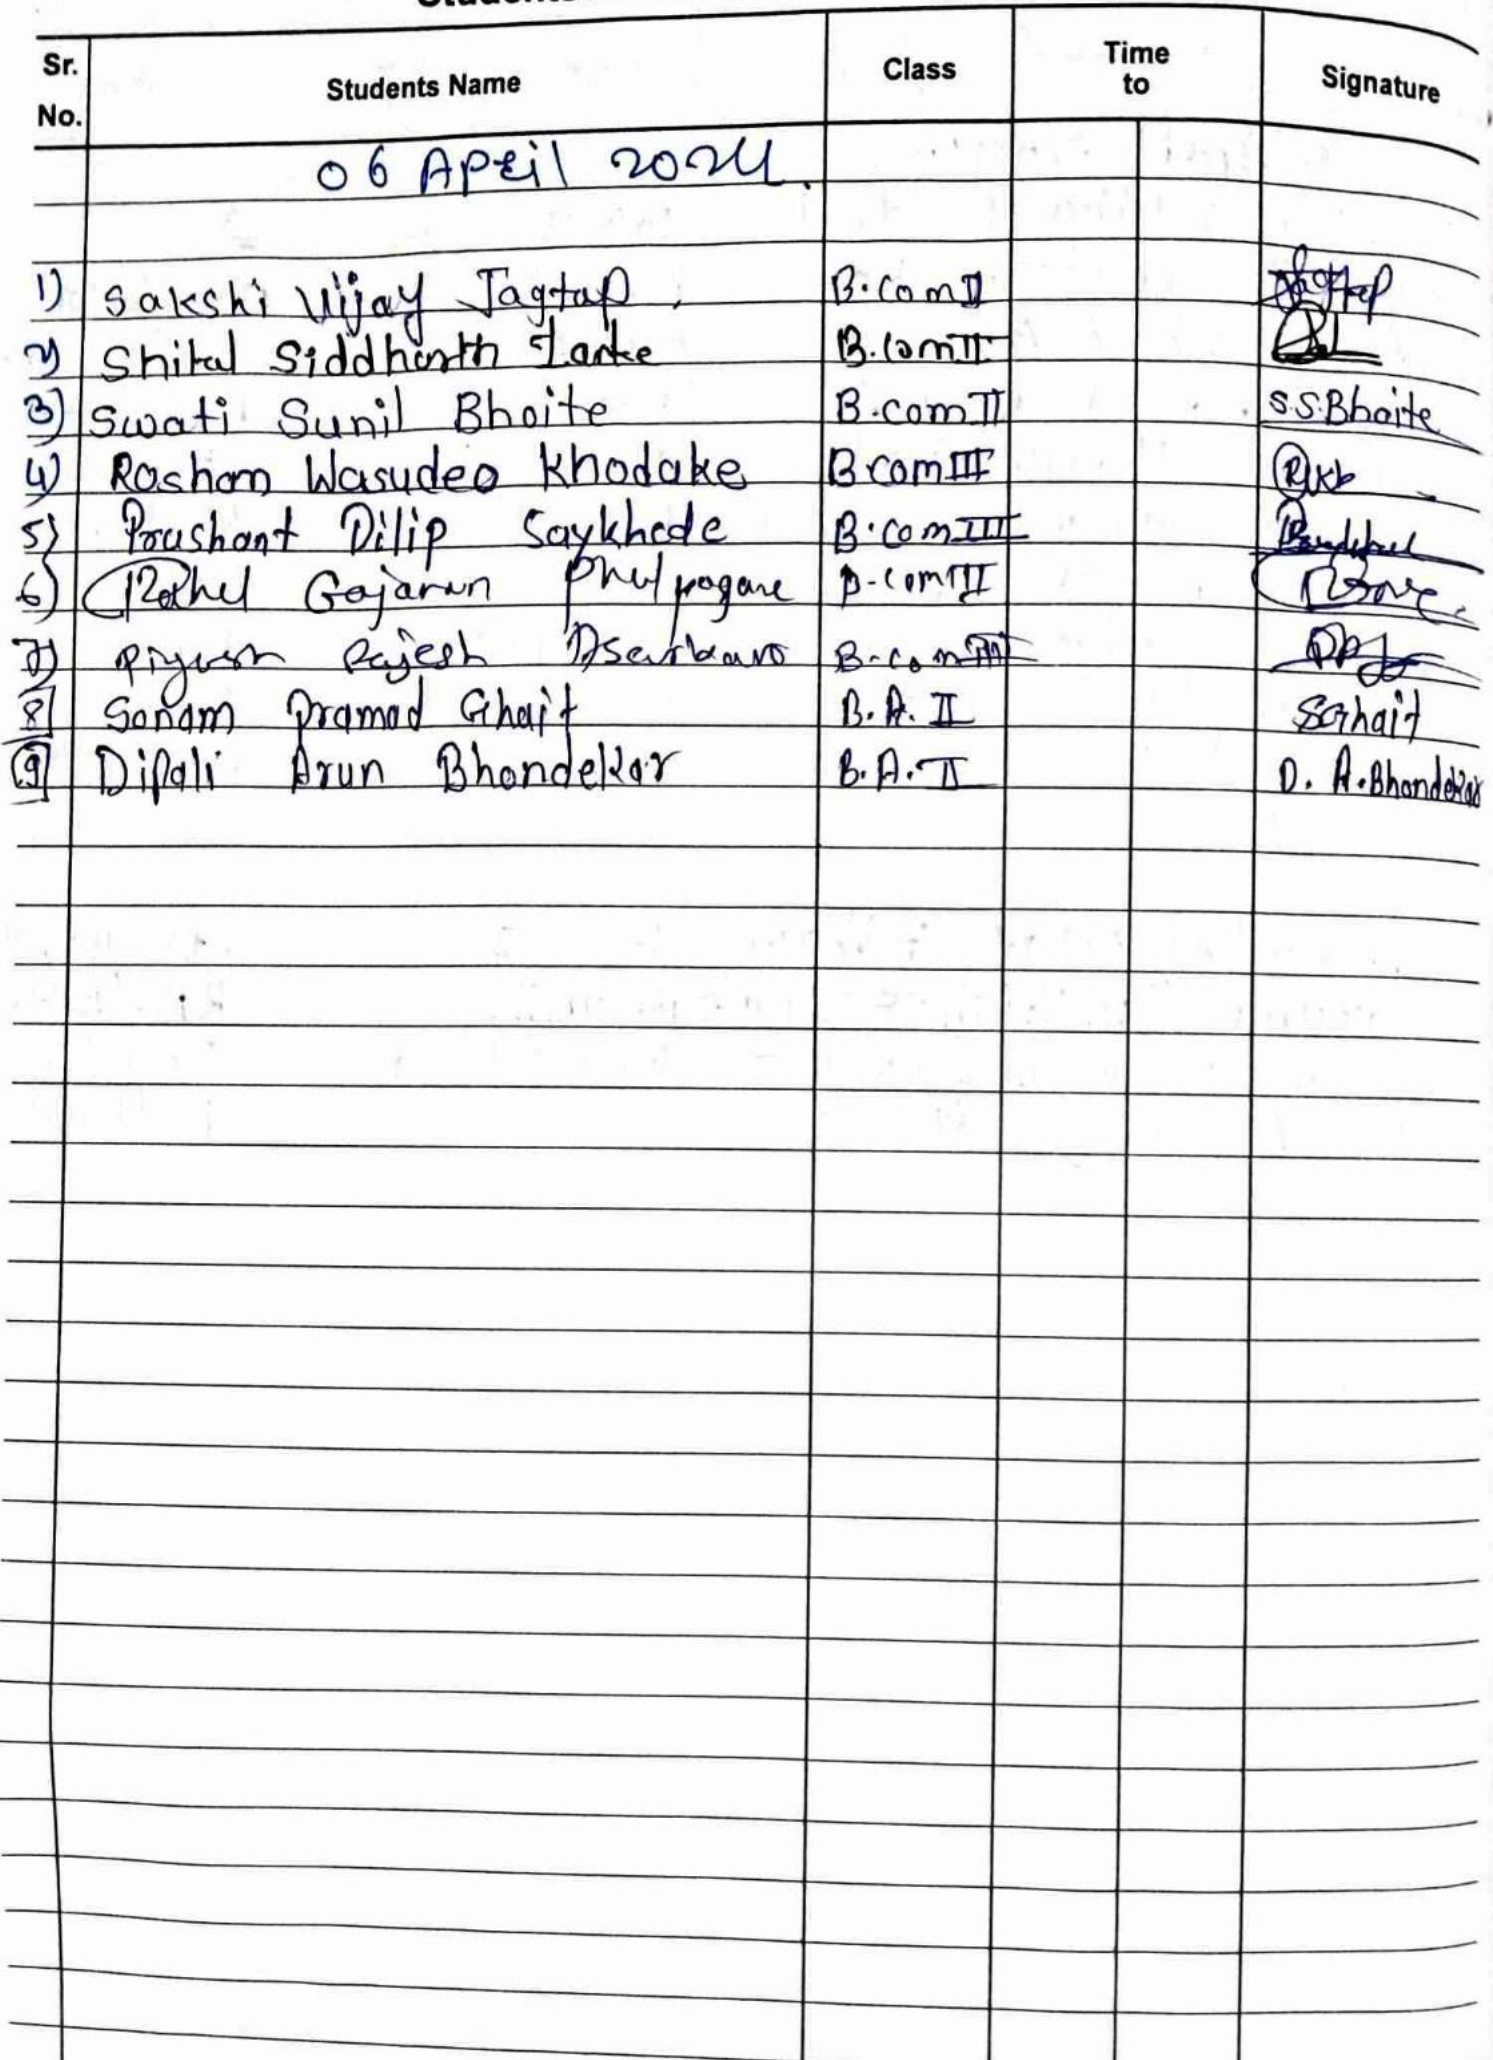 Sr. No. Students Name Class Time to Signature
06 April 2024
1) Sakshi Vijay Jagtap B.com II Jagtap
2) Shital Siddharth Zanke B.com II
3) Swati Sunil Bhoite B.com II S.S.Bhoite
4) Roshan Wasudeo Khodake B com III
5) Prashant Dilip Saykhede B.com III
6) Rahul Gajanan B-com III
7) Piyush Rajesh B-com III
8 Sonam Pramod Ghait B.A. II SGhait
9 Dipali Arun Bhondekar B.A. II D. A. Bhondekar